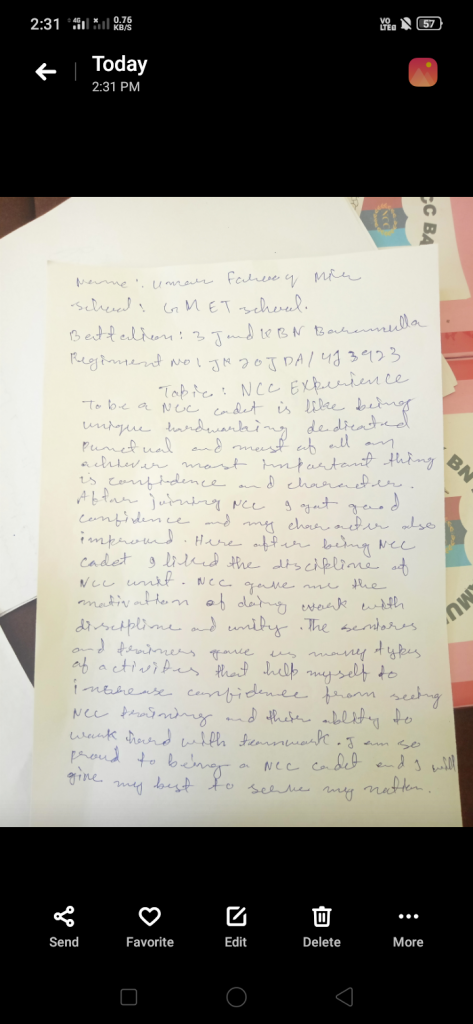 2:31 4G 0.76 KB/S VO LTE 57
Today
2:31 PM
CC BA
Name: Umar Farooq Mir
School: GMET school.
Battallion: 3 J and K BN Baramulla
Regiment No: JK20JDA/413923
Topic: NCC Experience
To be a NCC cadet is like being
unique hardworking dedicated
punctual and most of all an
achiver most important thing
is confidence and character.
After joining NCC I got good
confidence and my character also
improved. Here after being NCC
cadet I liked the discipline of
NCC unit. NCC gave me the
motivation of doing work with
discipline and unity. The seniores
and trainers gave us many types
of activities that help myself to
increase confidence from seeing
NCC training and their ability to
work hard with teamwork. I am so
proud to being a NCC cadet and I will
give my best to serve my nation.
BN
Send Favorite Edit Delete More